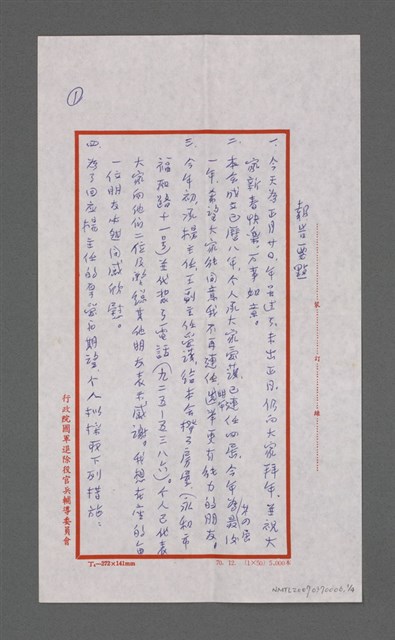 ①
報告要點
一、今天為正月廿日，年雖過了，未出正月，仍向大家拜年，並祝大
家新春快樂，萬事如意。
二、本會成立已曆八年，個人承大家愛護，已連任四屆，今年為最後
第四屆
一年，希望大家能同意我不再連任，選舉更有能力的朋友。
三、今年初承楊主任、王副主任愛護，給本會撥了房屋（永和市
福和路十一號）並代裝了電話（九二五—五三八六）。個人已代表
大家向他們二位及幾位其他朋友表示感謝。我想在座的每
一位朋友也都同感欣慰。
四、為了回應楊主任的厚愛和期望，個人擬採取下列措施：
裝 訂 線
行政院國軍退除役官兵輔導委員會
T₁—272×141mm
76. 12. (1×50) 2,000本
NMTL20090370006 1/4